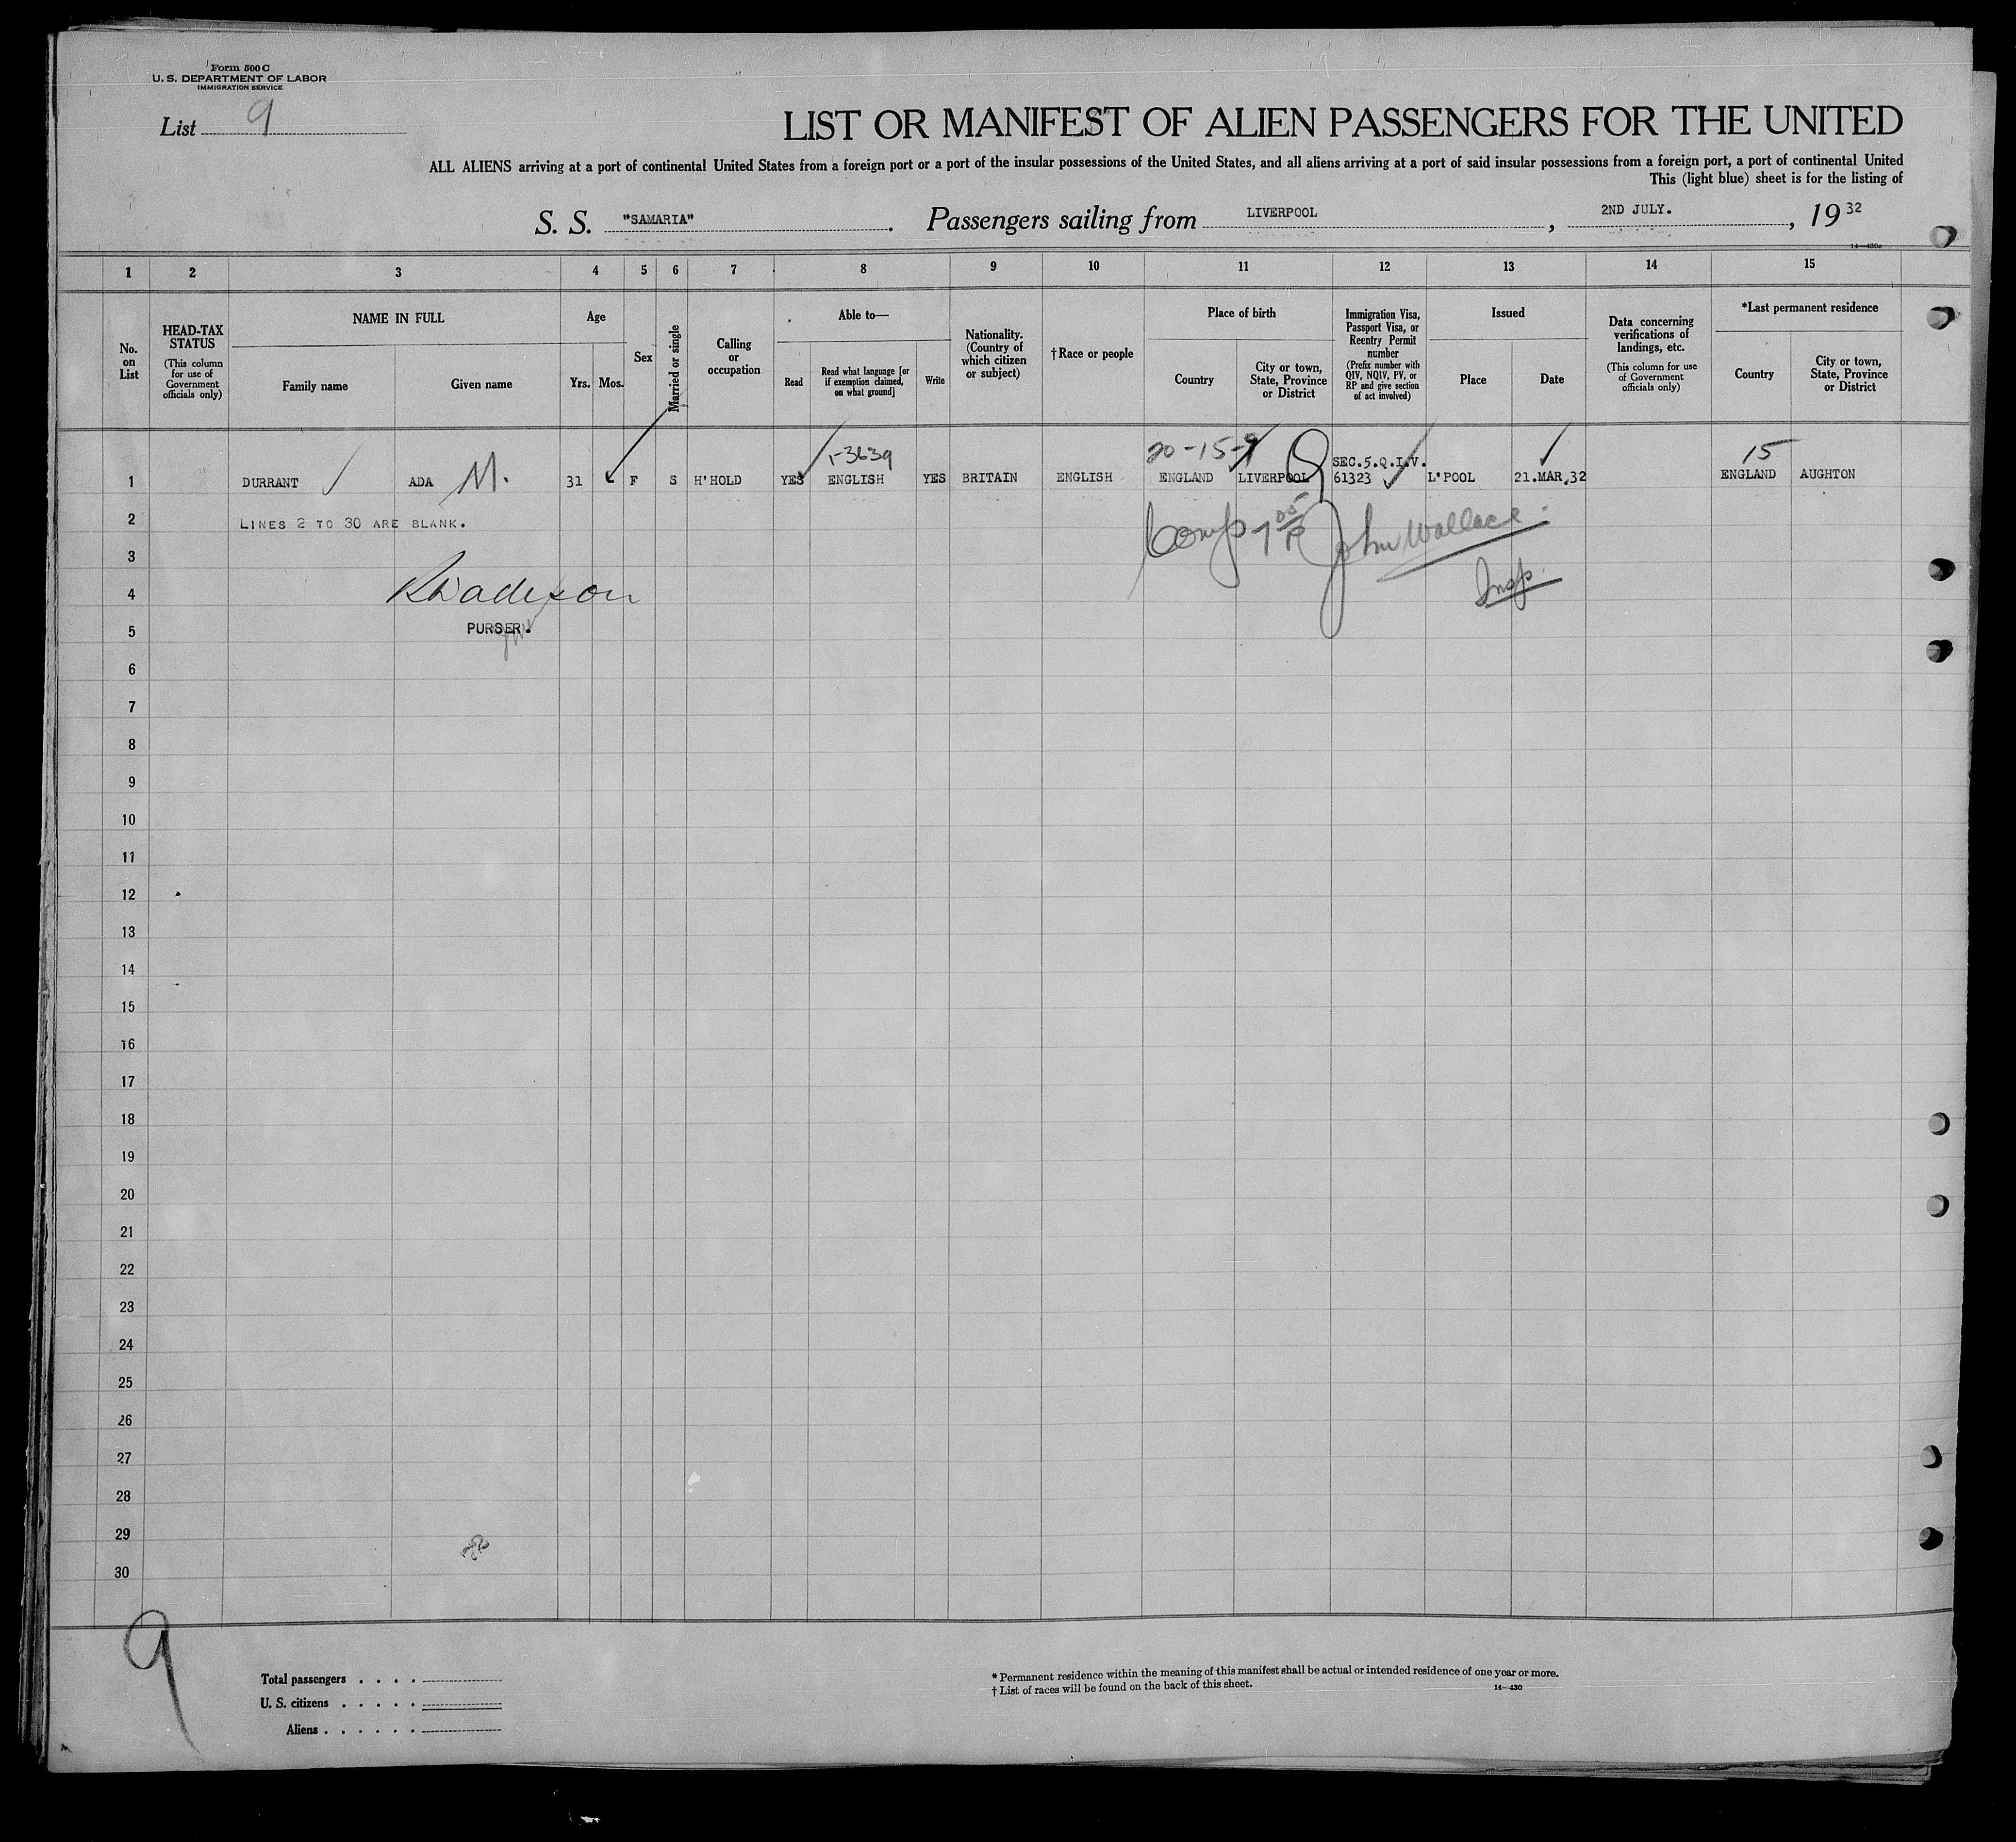 Form 500 C
U. S. DEPARTMENT OF LABOR
IMMIGRATION SERVICE
List 9
LIST OR MANIFEST OF ALIEN PASSENGERS FOR THE UNITED
ALL ALIENS arriving at a port of continental United States from a foreign port or a port of the insular possessions of the United States, and all aliens arriving at a port of said insular possessions from a foreign port, a port of continental United
This (light blue) sheet is for the listing of
S. S. "SAMARIA". Passengers sailing from LIVERPOOL, 2ND JULY., 19 32
14—430a
1 2 3 4 5 6 7 8 9 10 11 12 13 14 15
No. on List
HEAD-TAX STATUS
(This column for use of Government officials only)
NAME IN FULL
Family name
Given name
Age
Yrs. Mos.
Sex
Married or single
Calling or occupation
Able to—
Read
Read what language [or if exemption claimed, on what ground]
Write
Nationality. (Country of which citizen or subject)
†Race or people
Place of birth
Country
City or town, State, Province or District
Immigration Visa, Passport Visa, or Reentry Permit number
(Prefix number with QIV, NQIV, PV, or RP and give section of act involved)
Issued
Place
Date
Data concerning verifications of landings, etc.
(This column for use of Government officials only)
*Last permanent residence
Country
City or town, State, Province or District
1-3639 20-15-9 SEC.5.Q.I.V. 15
1 DURRANT ADA M. 31 F S H'HOLD YES ENGLISH YES BRITAIN ENGLISH ENGLAND LIVERPOOL 61323 L'POOL 21.MAR.32 ENGLAND AUGHTON
2 LINES 2 TO 30 ARE BLANK. John Wallace
3
4 Insp.
5 PURSER.
6
7
8
9
10
11
12
13
14
15
16
17
18
19
20
21
22
23
24
25
26
27
28
29
30
9
Total passengers . . . .
U. S. citizens . . . . .
Aliens . . . . . .
* Permanent residence within the meaning of this manifest shall be actual or intended residence of one year or more.
† List of races will be found on the back of this sheet.
14—430